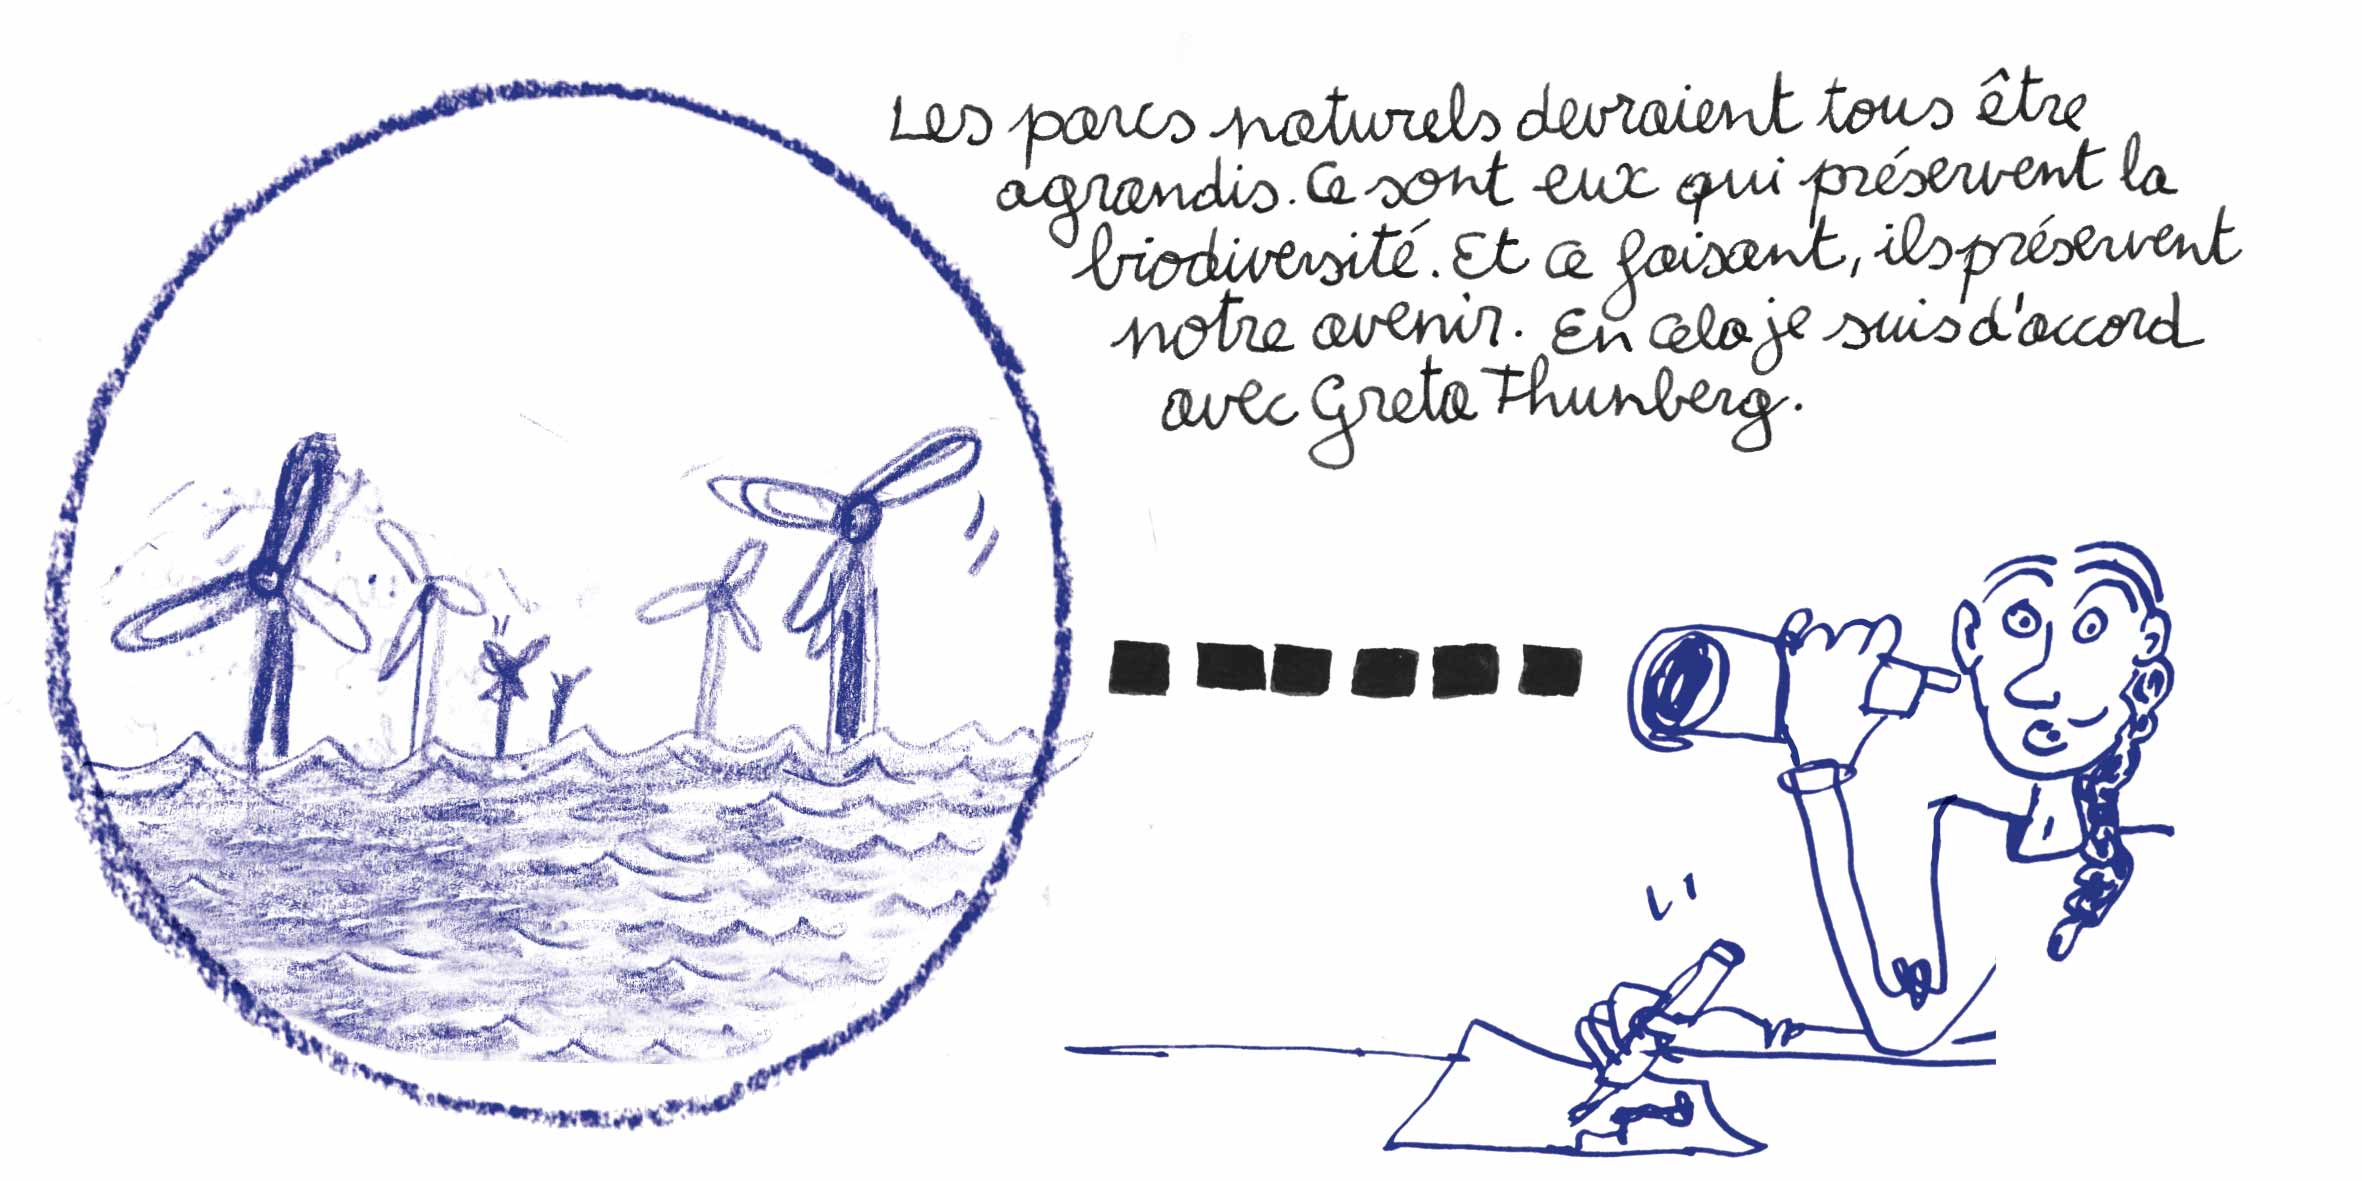 Les parcs naturels devraient tous être
agrandis. Ce sont eux qui préservent la
biodiversité. Et ce faisant, ils préservent
notre avenir. En cela je suis d'accord
avec Greta Thunberg.